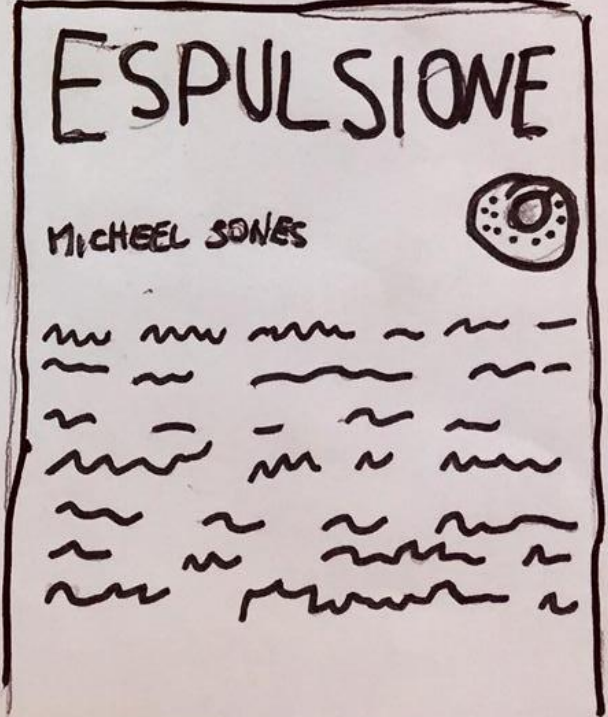 ESPULSIONE
MICHEEL SONES